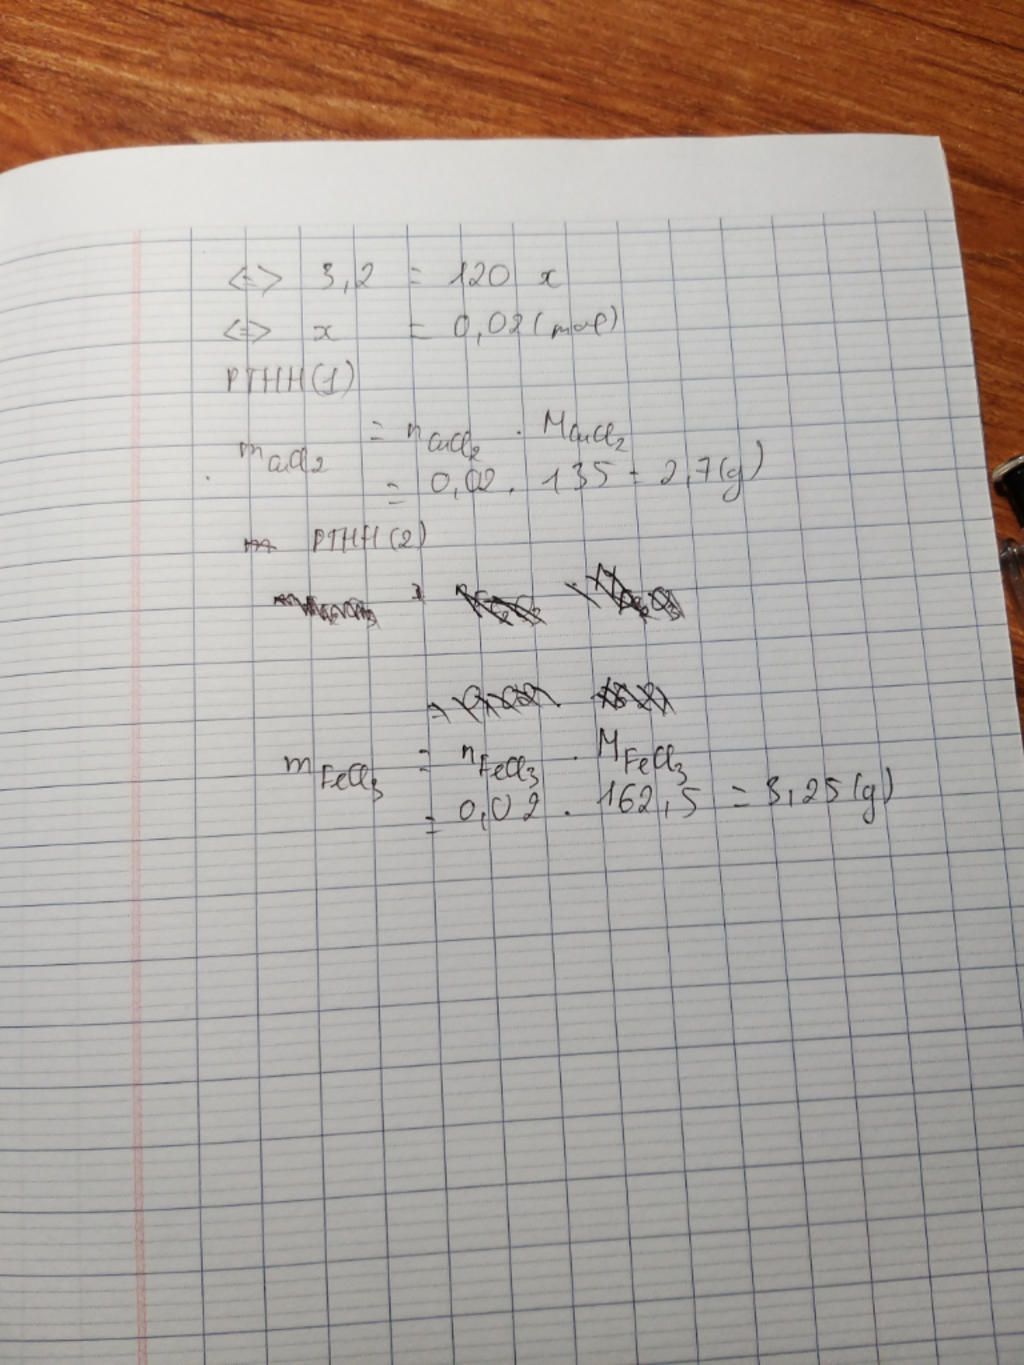 <=> 3,2 = 120 x
<=> x = 0,02 (mol)
PTHH(1)
mCuCl2 = nCuCl2 . MCuCl2
= 0,02 . 135 = 2,7(g)
PTHH(2)
mFeCl3 = nFeCl3 . MFeCl3
= 0,02 . 162,5 = 3,25(g)